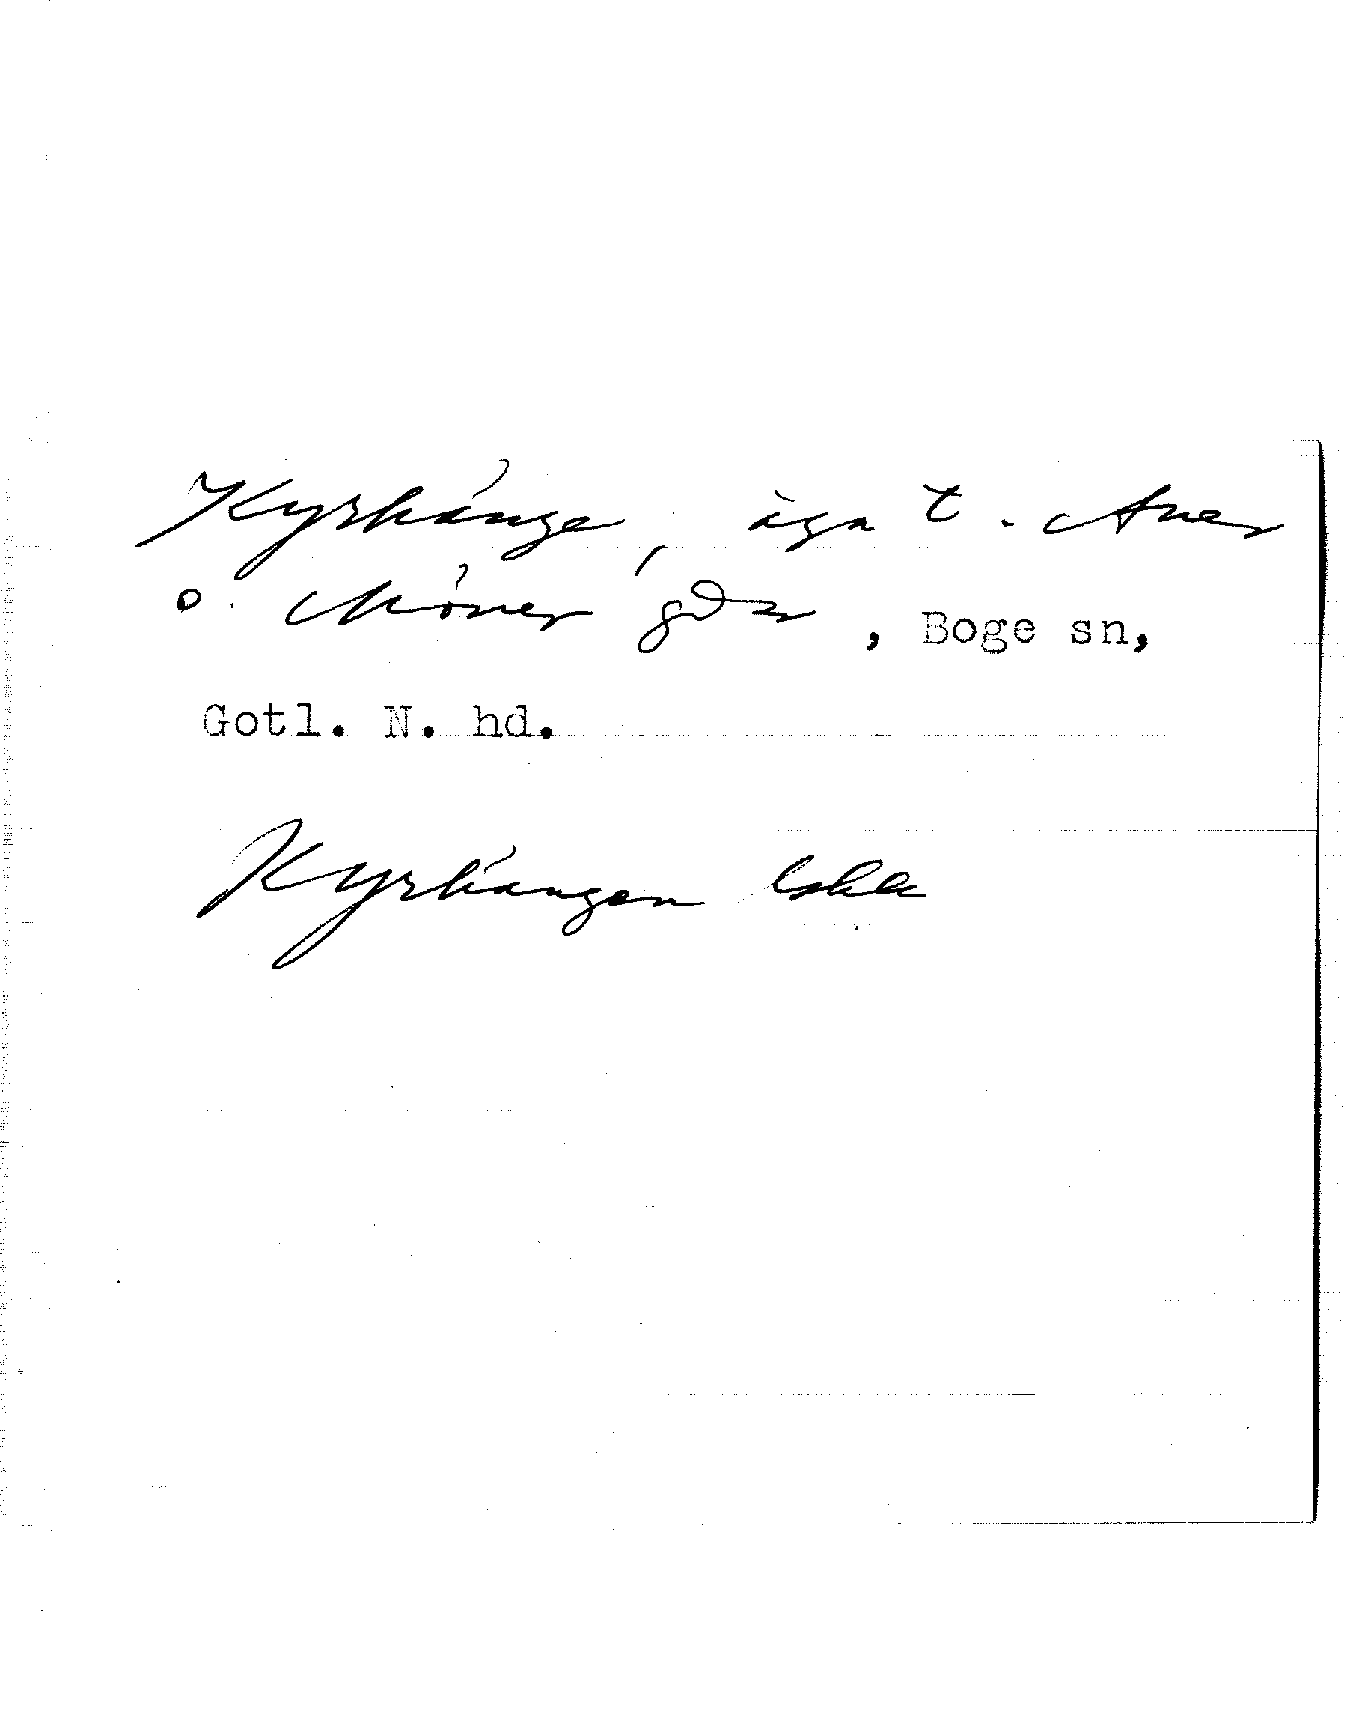 Kyrkänge, äga t. Aner
o. Möner gdr, Boge sn,
Gotl. N. hd.
Kyrkängen